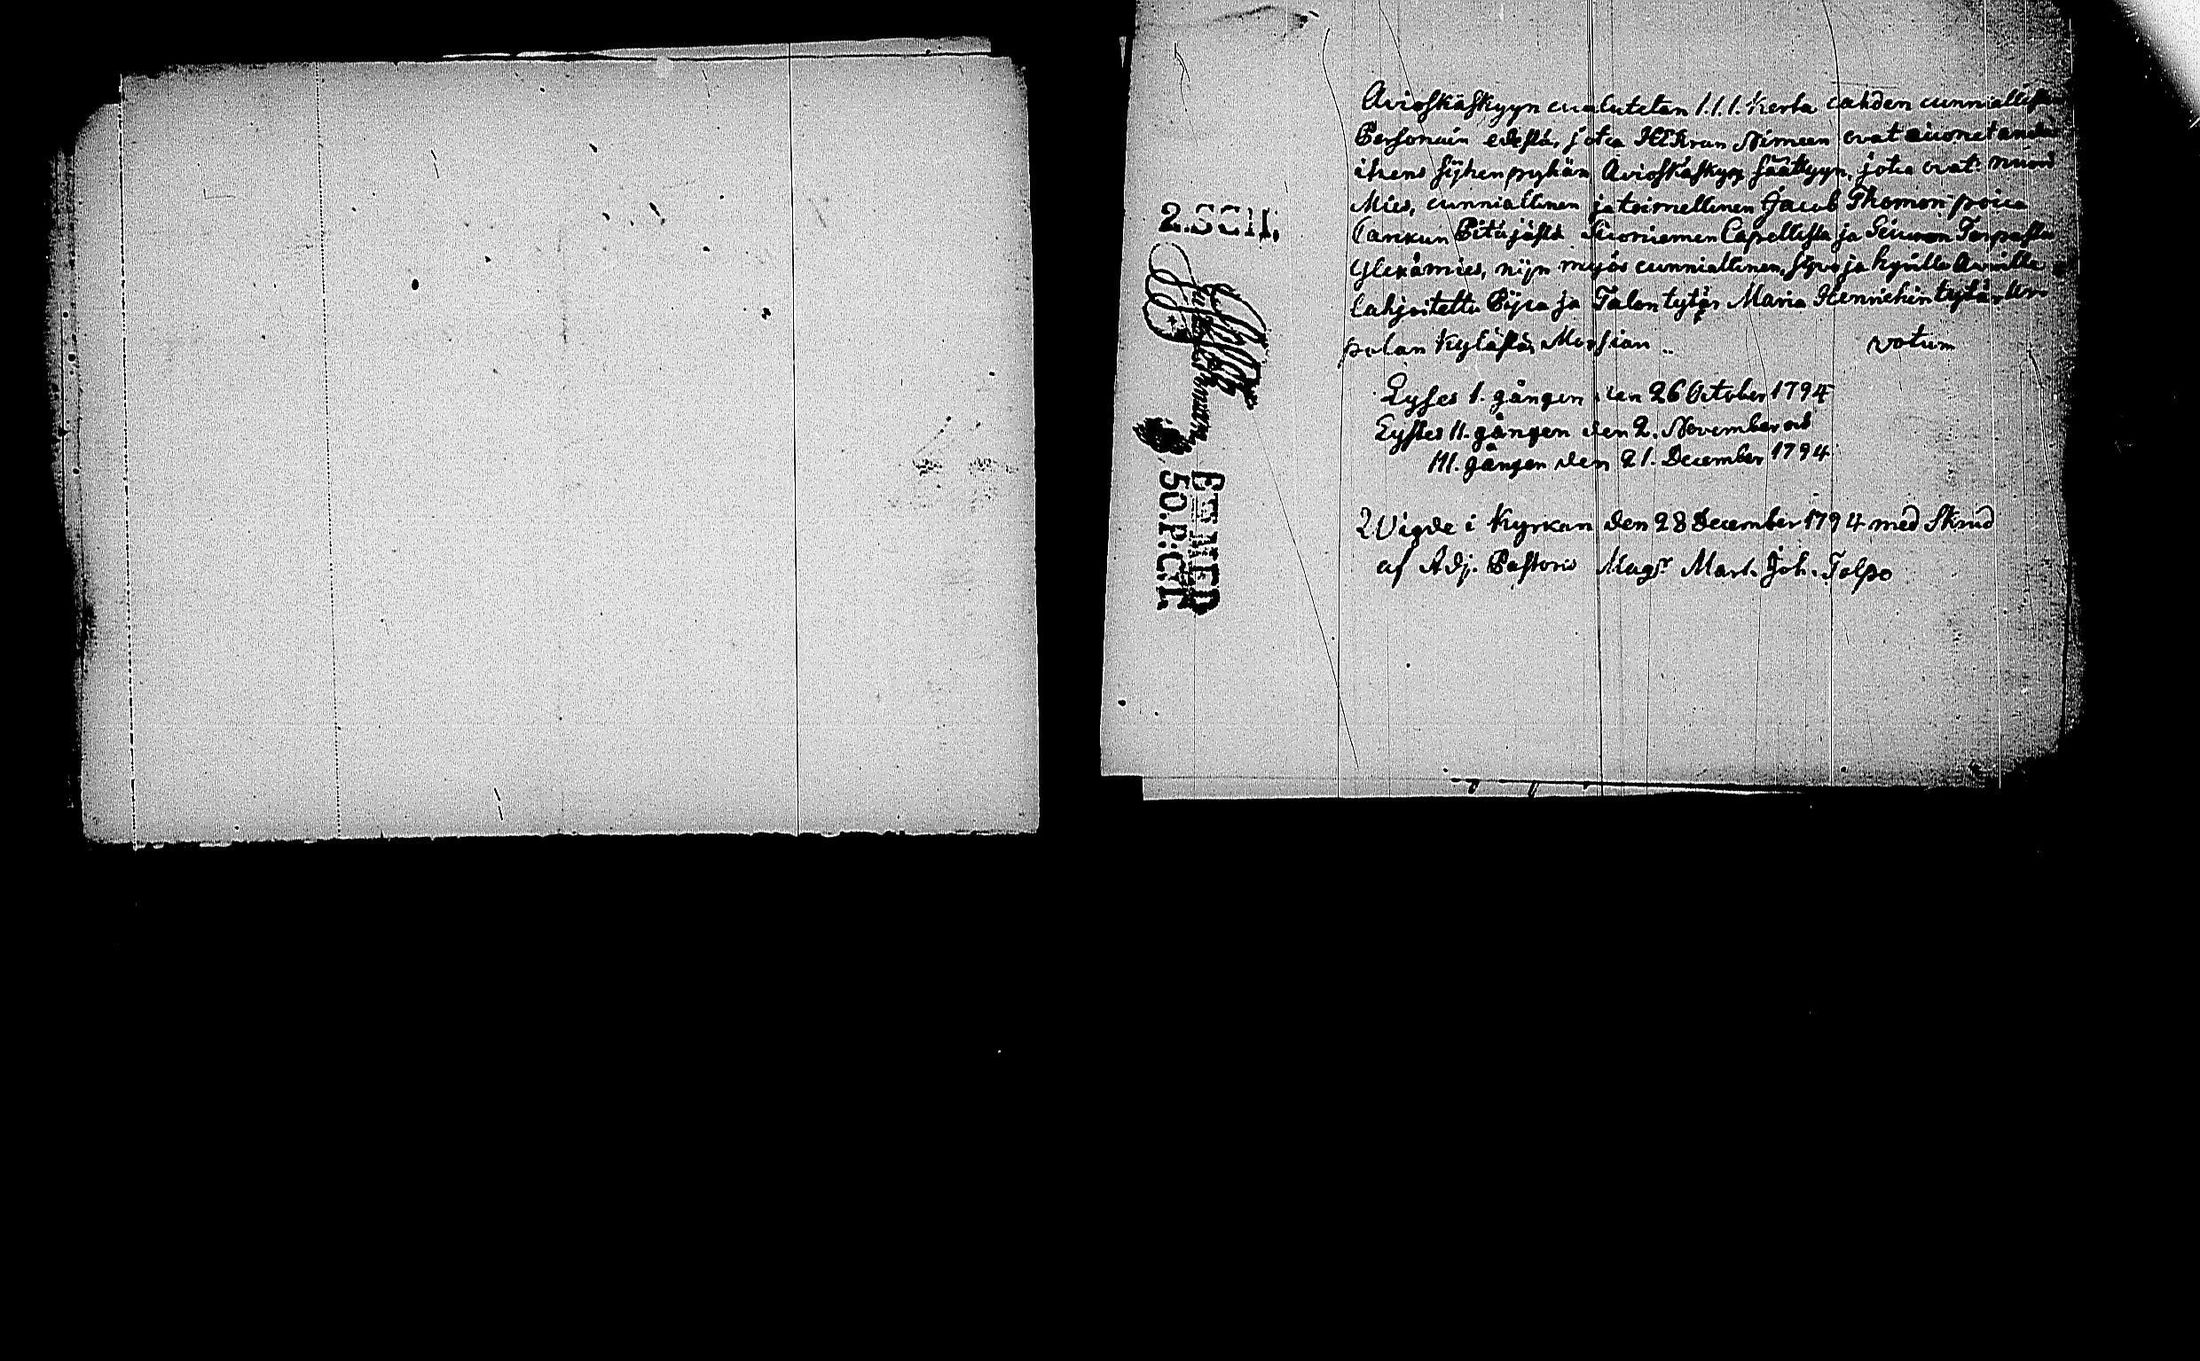 2.SCH.
ET MED
50.P:C:T.
Avioskäskyyn cuulutetan 1.1.1. kerta cahden cunniallisen
Personain edestä, jotca HERran Nimeen ovat aiconet anda
itzens sijhen pyhän Avioskäskyn säättyyn, jotca ovat: nuori
Mies, cunniallinen ja toimellinen Jacob Thomon poica
Carckun Pitäjästä Suoniemen Capellista ja Torpasta
Ylexämies, nijn myös cunniallinen, Sijvo ja hyvillä Avuilla
lahjoitettu Pijca ja Talon tytär Maria Hennrichin tytär
polan Kylästä, votum
Lystes 1. gången den 26 October 1794
Lystes II. gången den 2. November
III. gången den 21. December 1794
Wigde i Kyrkan den 28 December 1794 med Skrud
af Adj. Pastoris Magr Mart. Joh. Tolpo